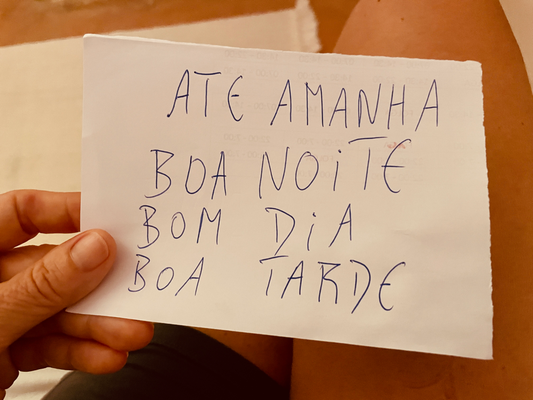 ATE AMANHA
BOA NOiTE
BOM DiA
BOA TARDE